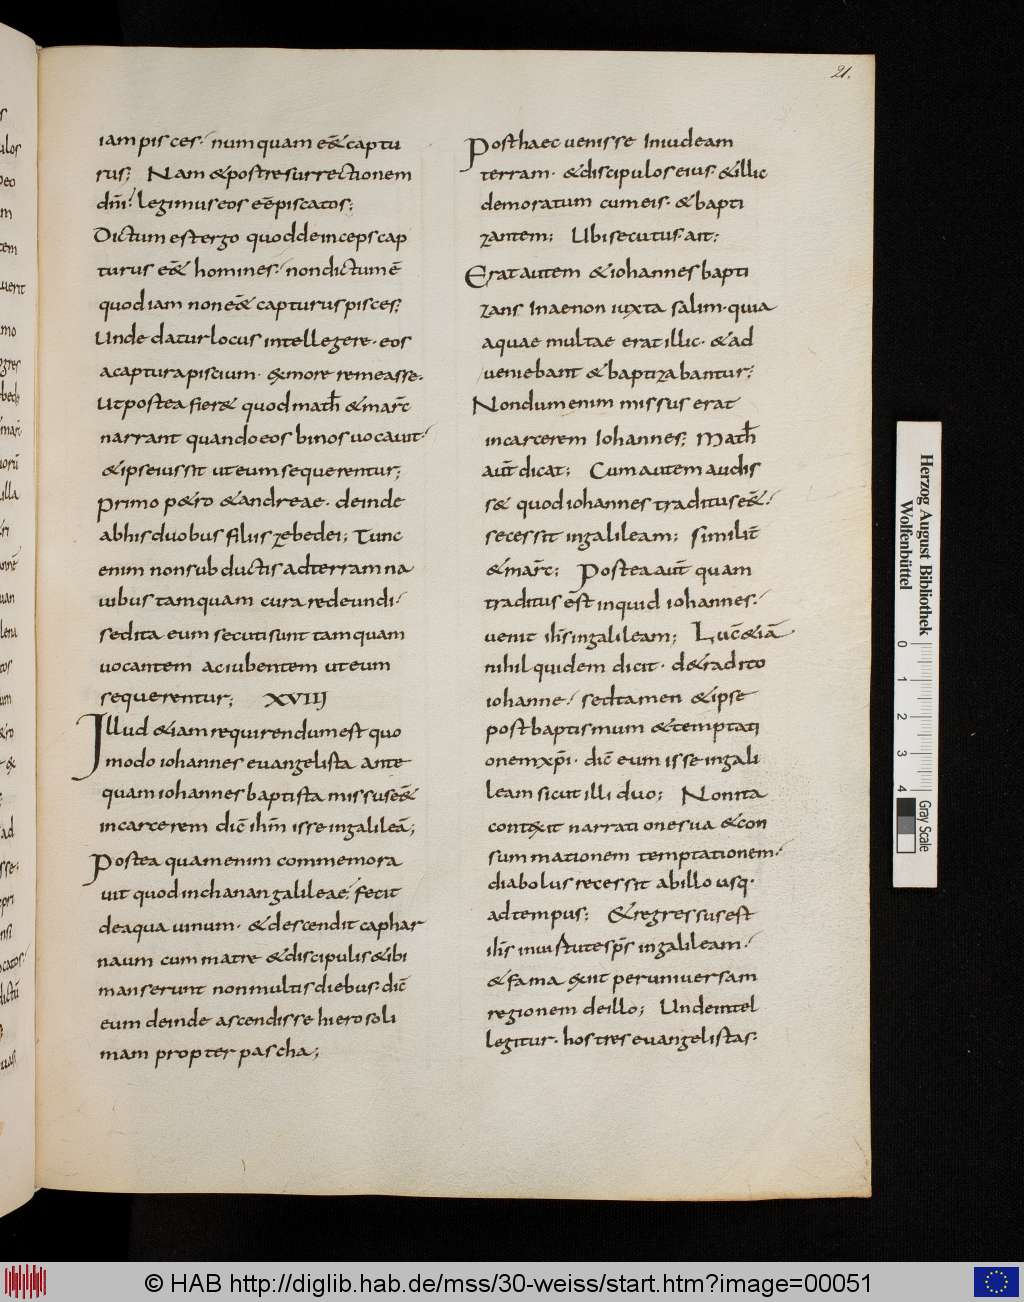 21.
iam pisces· numquam eē& captu
rus; Nam & post resurrectionem
dn̄i· legimus eos eē piscatos;
Dictum est ergo quod deinceps cap
turus eē& homines· non dictum ē
quod iam non eē& capturus pisces;
Unde datur locus intellegere· eos
a captura piscium· ex more remeasse·
Ut postea fier& quod math̄ & marc̄
narrant quando eos binos vocavit·
& ipse iussit ut eum sequerentur;
Primo p&ro & andreae· deinde
ab his duobus filiis zebedei; Tunc
enim non subductis ad terram na
vibus tamquam cura redeundi·
sed ita eum secuti sunt tamquam
vocantem ac iubentem ut eum
sequerentur; XVIII
Illud &iam requirendum est quo
modo iohannes evangelista ante
quam iohannes baptista missus eē&
in carcerem dic̄ ih̄m isse in galileā;
Postea quam enim commemora
vit quod in chanan galileae· fecit
de aqua vinum· & descendit caphar
naum cum matre & discipulis & ibi
manserunt non multis diebus· dic̄
eum deinde ascendisse hierosoli
mam propter pascha;
Post haec venisse In iudeam
terram· & discipulos eius· & illic
demoratum cum eis· & bapti
zantem; Ubi secutus· ait;
Erat autem & iohannes bapti
zans In aenon iuxta salim· quia
aquae multae erat illic· & ad
veniebant & baptizabantur;
Nondum enim missus erat
in carcerem Iohannes; Math̄
aut̄ dicat; Cum autem audis
s& quod iohannes traditus eē&·
secessit in galileam; similit̄
& marc̄; Postea aut̄ quam
traditus est inquid iohannes·
venit ih̄s in galileam; Luc̄ &iā
nihil quidem dicit· de tradito
iohanne· sed tamen & ipse
post baptismum & temptati
onem xp̄i· dic̄ eum isse in gali
leam sicut illi duo; Non ita
contexit narrationes ua & con
summationem temptationem·
diabolus recessit ab illo usq·
ad tempus; & regressus est
ih̄s in virtute sp̄s in galileam·
& fama exiit per universam
regionem de illo; Unde intel
legitur· hos tres evangelistas·
Herzog August Bibliothek
Wolfenbüttel
0 1 2 3 4
Gray Scale
© HAB http://diglib.hab.de/mss/30-weiss/start.htm?image=00051